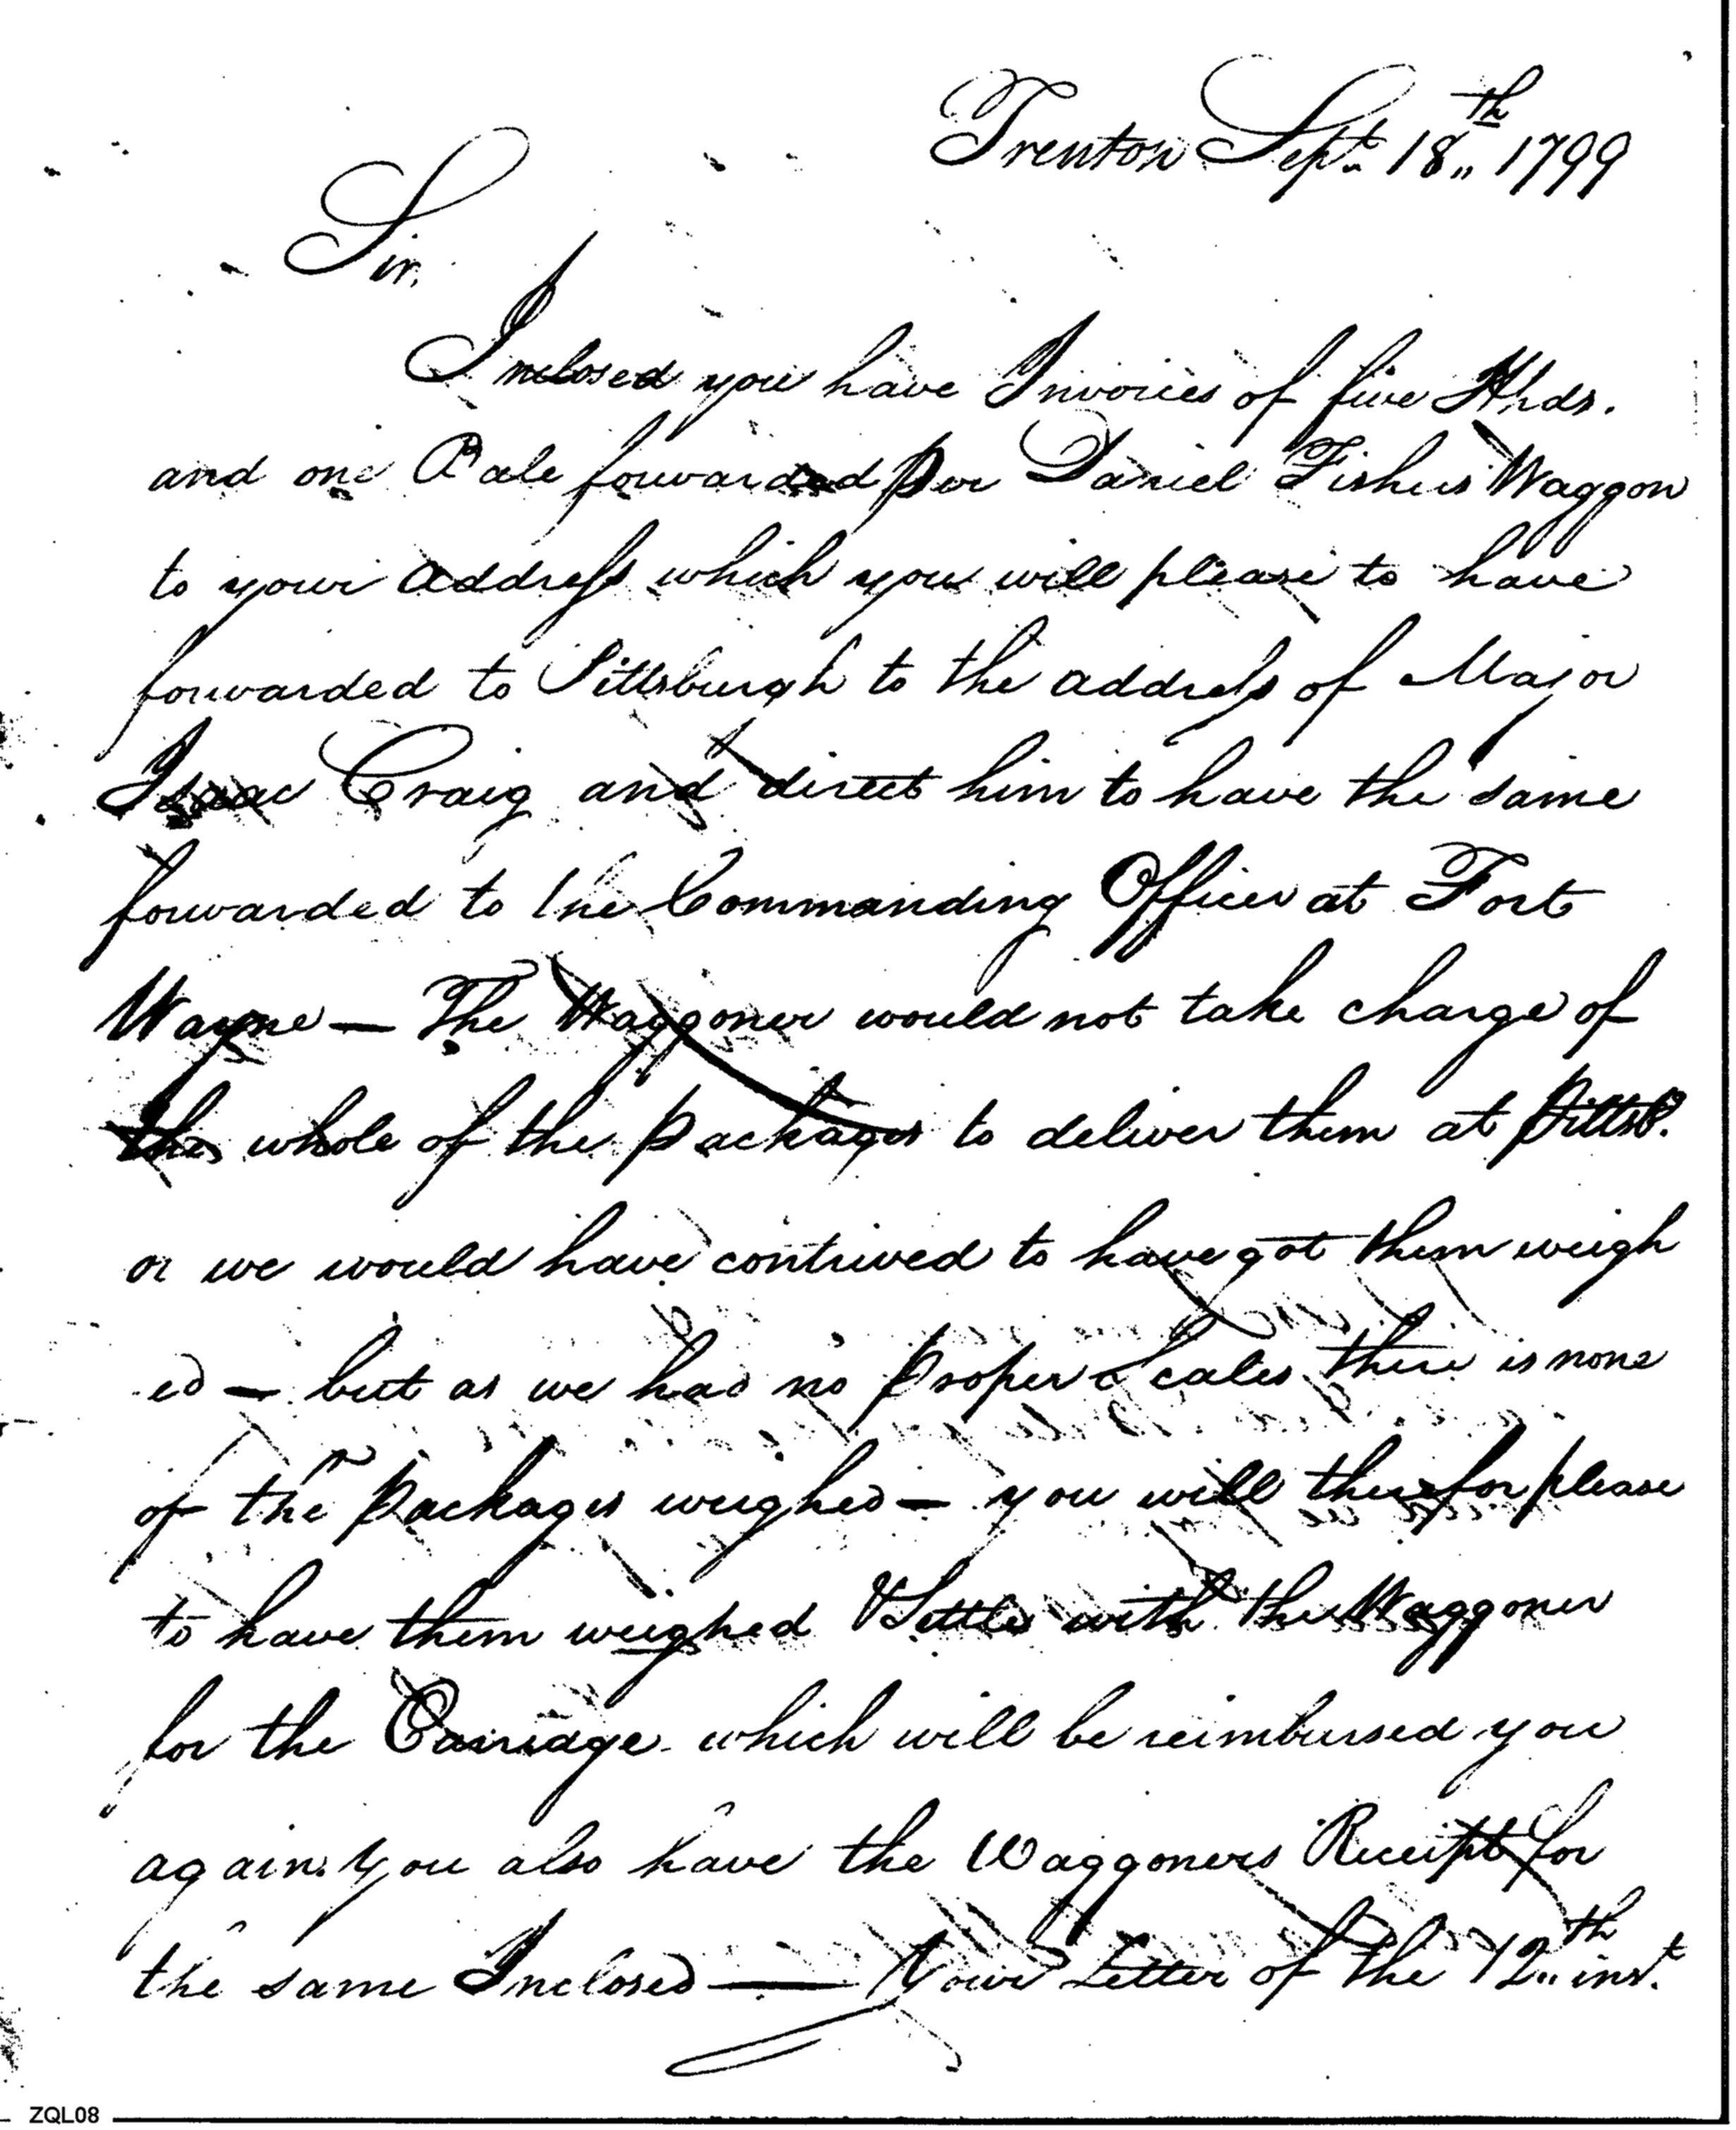 Trenton Sept. 18th 1799
Sir,
Inclosed you have Invoices of five Hhds.
and one Bale forwarded per Daniel Fishers Waggon
to your address which you will please to have
forwarded to Pittsburgh to the address of Major
Isaac Craig and direct him to have the same
forwarded to the Commanding Officer at Fort
Wayne — The Waggoner would not take charge of
the whole of the packages to deliver them at Pittsb.
or we would have contrived to have got them weigh
ed — but as we had no proper Scales there is none
of the packages weighed — you will therefor please
to have them weighed & Settle with the Waggoner
for the Carriage which will be reimbursed you
again. You also have the Waggoners Receipt for
the same Inclosed — Your Letter of the 12th inst.
ZQL08